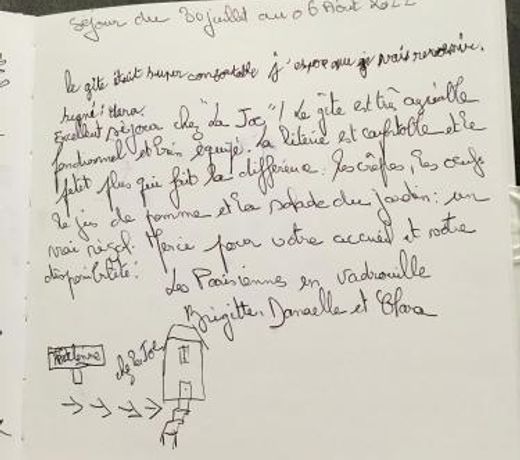 Séjour du 30 juillet au 06 Août 2022
le gîte était super confortable j'espère que je vais revenir.
signé: Clara.
Excellent séjour chez "La Joc"! Le gîte est très agréable
fonctionnel et bien équipé. La literie est confortable et le
petit plus qui fait la différence: les crêpes, les oeufs
le jus de pomme et la salade du jardin: un
vrai régal. Merci pour votre accueil et votre
disponibilité!
Les Parisiennes en vadrouille
Brigitte, Danaelle et Clara
chez la Joc